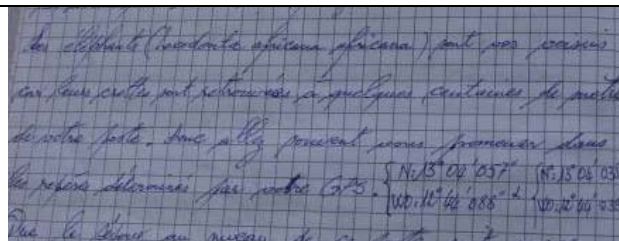 des éléphants (Loxodonta africana africana) sont vos voisins
car leurs crottes sont retrouvées à quelques centaines de mètre
de votre poste. Donc allez souvent vous promener dans
les repères déterminés par votre GPS. { N: 13° 04' 057" { N: 13° 04' 03
W0: 12° 44' 088" & W0: 12° 44' 03
Que le séjour au niveau de